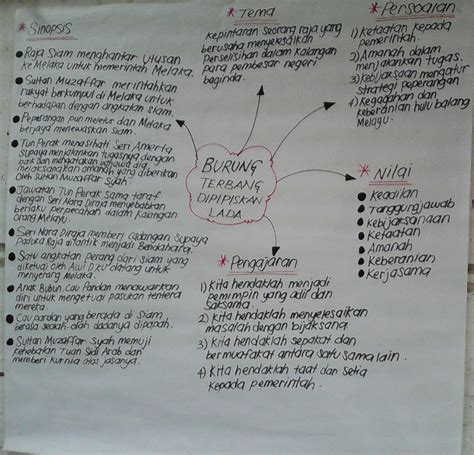 * Sinopsis
● Raja Siam menghantar utusan
ke Melaka untuk memerintah Melaka.
● Sultan Muzaffar merintahkan
rakyat berkumpul di Melaka untuk
berhadapan dengan angkatan siam.
● Peperangan pun meletus dan Melaka
berjaya menewaskan Siam.
● Tun Perak menasihati Seri Amerta
supaya menjalankan tugasnya dengan
baik dan mengatakan bahawa dia
melaksanakan amanah yang diberikan
oleh Sultan Muzaffar Syah.
● Jawatan Tun Perak sama taraf
dengan Seri Nara Diraja menyebabkan
berlaku perpecahan dalam kalangan
orang Melayu.
● Seri Nara Diraja memberi cadangan supaya
Paduka Raja dilantik menjadi Bendahara.
● Satu angkatan perang dari siam yang
diketuai oleh Awi Di Cu datang untuk
menyerang Melaka.
● Anak Bubun. Cau Pandan menawarkan
diri untuk mengetuai pasukan tentera
mereka.
● Cau pandan yang berada di Siam
berasa seolah-olah dadanya dipanah.
● Sultan Muzaffar Syah memuji
kehebatan Tuan Sidi Arab dan
memberi kurnia atas jasanya.
* Tema
Kepintaran seorang raja yang
berusaha menyelesaikan
perselisihan dalam kalangan
para pembesar negeri
baginda.
* Persoalan
1) Ketaatan kepada
pemerintah.
2) Amanah dalam
menjalankan tugas.
3) Kebijaksaan mengatur
strategi peperangan
4) Kegagahan dan
keberanian hulu balang
Melayu.
BURUNG
TERBANG
DIPIPISKAN
LADA
* Nilai
● Keadilan
● Tanggungjawab
● Kebijaksinaan
● Ketaatan
● Amanah
● Keberanian
● Kerjasama
* Pengajaran
1) Kita hendaklah menjadi
pemimpin yang adil dan
saksama.
2) Kita hendaklah menyelesaikan
masalah dengan bijaksana
3) Kita hendaklah sepakat dan
bermuafakat antara satu sama lain.
4) Kita hendaklah taat dan setia
kepada pemerintah.